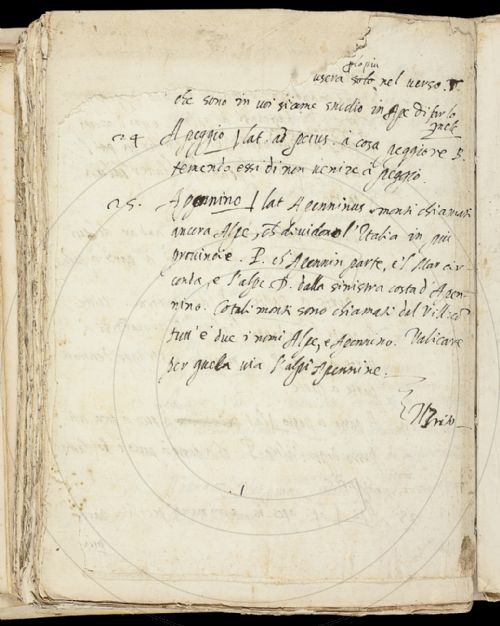 usera solo nel verso. 
che sono in voi siame snidio in Ape di far lo
24 Apeggio | lat. ad peius. a cosa peggiore B.
temendo essi di non venire a peggio.
25. Apennino | lat Apenninus. monti chiamati
ancora Alpe, ch dividono l'Italia in piu
provincie. P. ch Apennin parte, e 'l Mar cir
conda, e l'alpe D. dalla sinistra costa d Apen-
nino. Cotali monti sono chiamati dal Vill: cō
tutt' e due i nomi Alpe, e Apennino. Valicare
per quella via l'alpi Apennine.